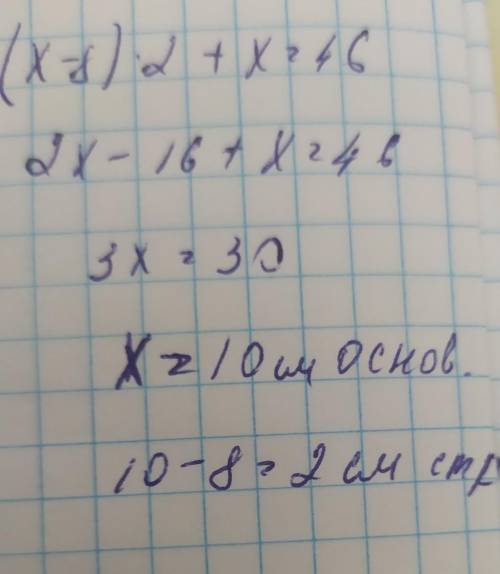 (x-8)·2+x=46
2x-16+x=46
3x=30
x=10 см основ.
10-8=2 см стр